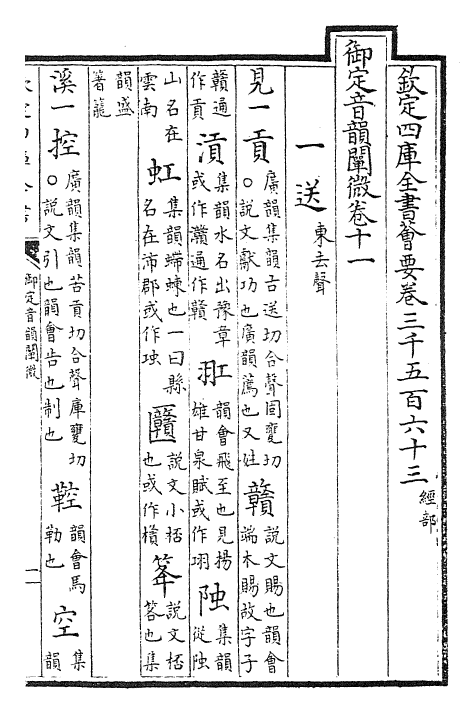 欽定四庫全書薈要卷三千五百六十三 經部
御定音韻闡微卷十一
一送 東去聲
見一貢 廣韻集韻古送切合聲固甕切○說文獻功也廣韻薦也又姓 贛 說文賜也韻會端木賜故字子
贛通作貢 集韻水名出豫章或作灨通作贛 羾 韻會飛至也見揚雄甘泉賦或作 集韻
山名在雲南 虹 集韻螮蝀也一曰縣名在沛郡或作 說文小桮也或作 說文桮笿也集
韻盛箸籠
溪一控 廣韻集韻苦貢切合聲庫甕切○說文引也韻會告也制也 鞚 韻會馬勒也 空 集韻
御定音韻闡微
一